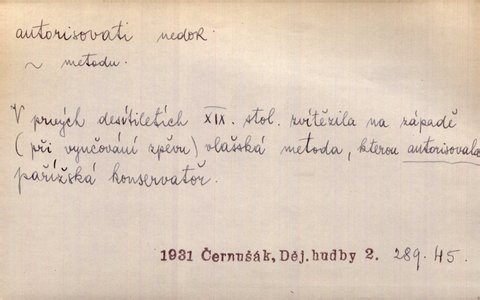 autorisovati nedok.
~ metodu.
V prvých desítiletích XIX. stol. zvítězila na západě
(při vyučování zpěvu) vlašská metoda, kterou autorisovala
pařížská konservatoř.
1931 Černušák, Děj. hudby 2. 289. 45.